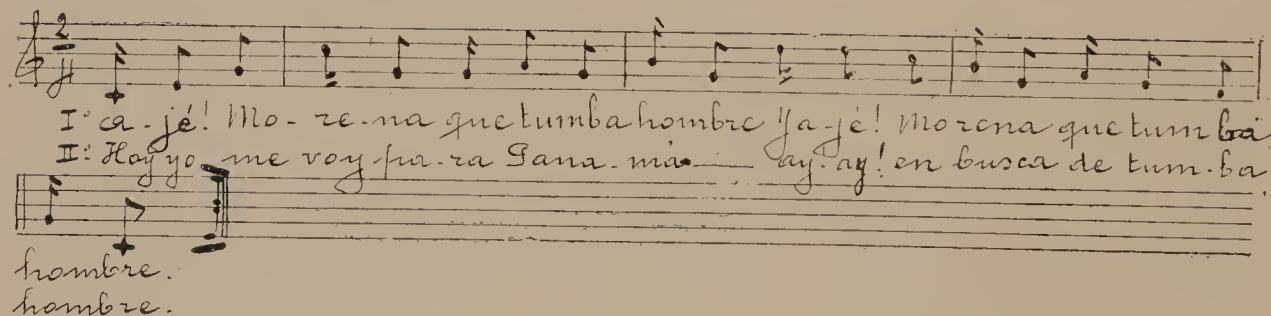 2
I° ca-jé! Mo-re-na que tumba hombre Ya-jé! Morena que tumba
II° Hoy yo me voy pa-ra Pana-má ay-ay! en busca de tum-ba
hombre.
hombre.